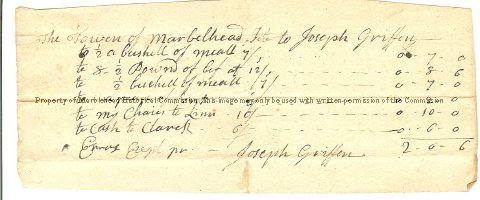 The Towen of Marbelhead to Joseph Griffen
to ½ a bushell of meall 7/ 0 - 7 - 0
to 8-½ Pownd of bef at 1/ 0 - 8 - 6
to ½ bushell of meall 7/ 0 - 7 - 0
Property of Marblehead Historical Commission. This image may only be used with written permission of the Commission.
to my Chares to Linn 10/ 0 - 10 - 0
to Cash to Clarek 6/ 0 - 6 - 0
Errors Excpt pr Joseph Griffen 2 - 0 - 6